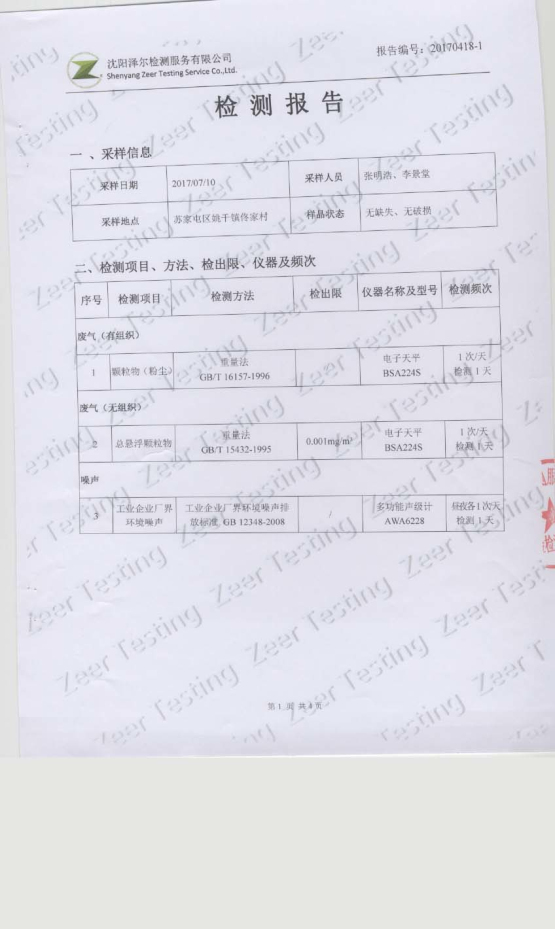 沈阳泽尔检测服务有限公司
Shenyang Zeer Testing Service Co.,Ltd.
报告编号：20170418-1
检 测 报 告
一 、采样信息
采样日期 2017/07/10 采样人员 张明浩、李景堂
采样地点 苏家屯区姚千镇佟家村 样品状态 无缺失、无破损
二、检测项目、方法、检出限、仪器及频次
序号 检测项目 检测方法 检出限 仪器名称及型号 检测频次
废气（有组织）
1 颗粒物（粉尘） 重量法 GB/T 16157-1996 电子天平 BSA224S 1 次/天 检测 1 天
废气（无组织）
2 总悬浮颗粒物 重量法 GB/T 15432-1995 0.001mg/m³ 电子天平 BSA224S 1 次/天 检测 1 天
噪声
3 工业企业厂界环境噪声 工业企业厂界环境噪声排放标准 GB 12348-2008 / 多功能声级计 AWA6228 昼夜各1次/天 检测 1 天
第 1 页 共 4 页
Zeer Testing